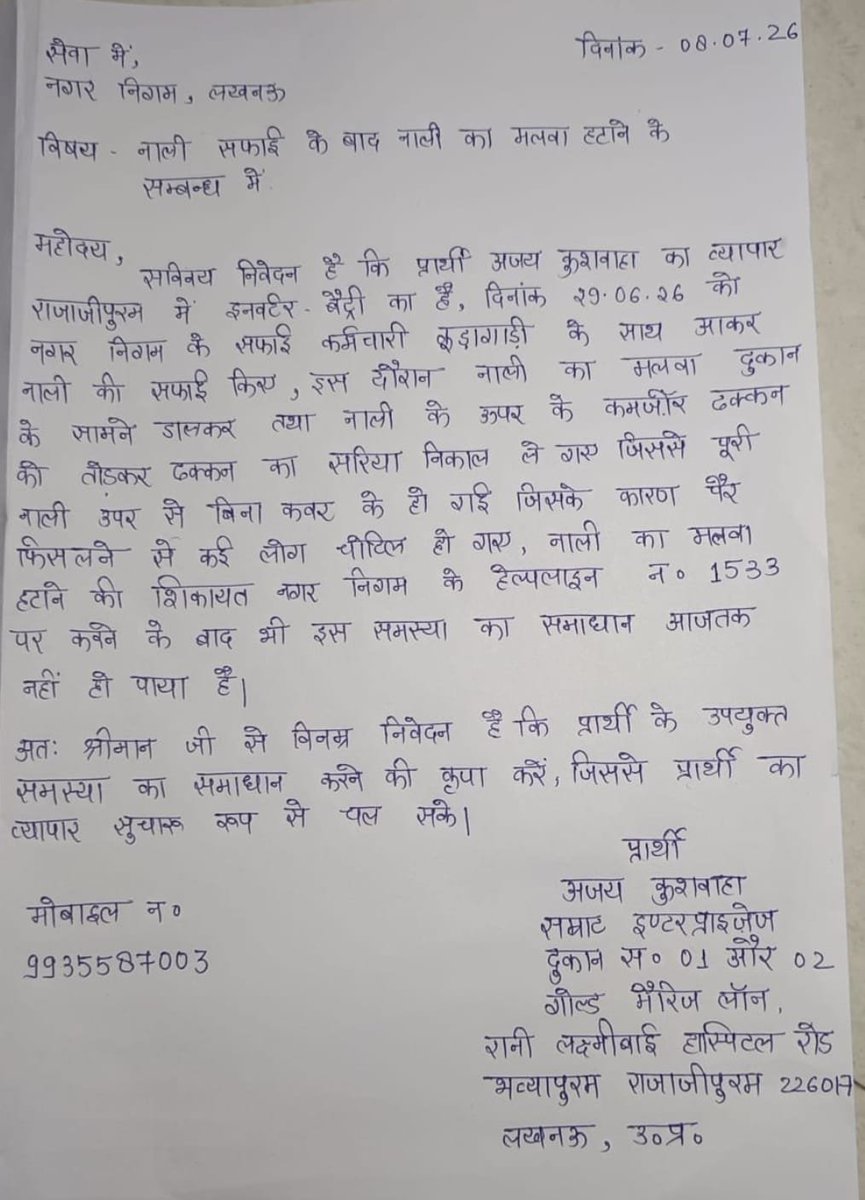 सेवा में,
दिनांक - 08.07.26
नगर निगम, लखनऊ
विषय - नाली सफाई के बाद नाली का मलवा हटाने के
सम्बन्ध में
महोदय,
सविनय निवेदन है कि प्रार्थी अजय कुशवाहा का व्यापार
राजाजीपुरम में इनवर्टर - बैट्री का है, दिनांक 29.06.26 को
नगर निगम के सफाई कर्मचारी कूड़ागाड़ी के साथ आकर
नाली की सफाई किए, इस दौरान नाली का मलवा दुकान
के सामने डालकर तथा नाली के ऊपर के कमजोर ढक्कन
को तोड़कर ढक्कन का सरिया निकाल ले गए जिससे पूरी
नाली उपर से बिना कवर के हो गई जिसके कारण पैर
फिसलने से कई लोग चोटिल हो गए, नाली का मलवा
हटाने की शिकायत नगर निगम के हेल्पलाइन न० 1533
पर करने के बाद भी इस समस्या का समाधान आजतक
नहीं हो पाया है।
अतः श्रीमान जी से विनम्र निवेदन है कि प्रार्थी के उपयुक्त
समस्या का समाधान करने की कृपा करें, जिससे प्रार्थी का
व्यापार सुचारू रूप से चल सके।
प्रार्थी
अजय कुशवाहा
सम्राट इण्टरप्राइजेज
दुकान स० 01 और 02
गोल्ड मैरिज लॉन,
रानी लक्ष्मीबाई हास्पिटल रोड
भव्यापुरम राजाजीपुरम 226017
लखनऊ, उ०प्र०
मोबाइल न०
9935587003